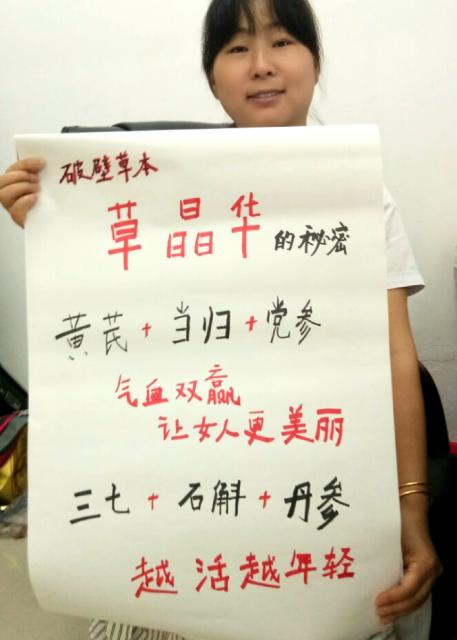 破壁草本
草晶华的秘密
黄芪+当归+党参
气血双赢
让女人更美丽
三七+石斛+丹参
越活越年轻